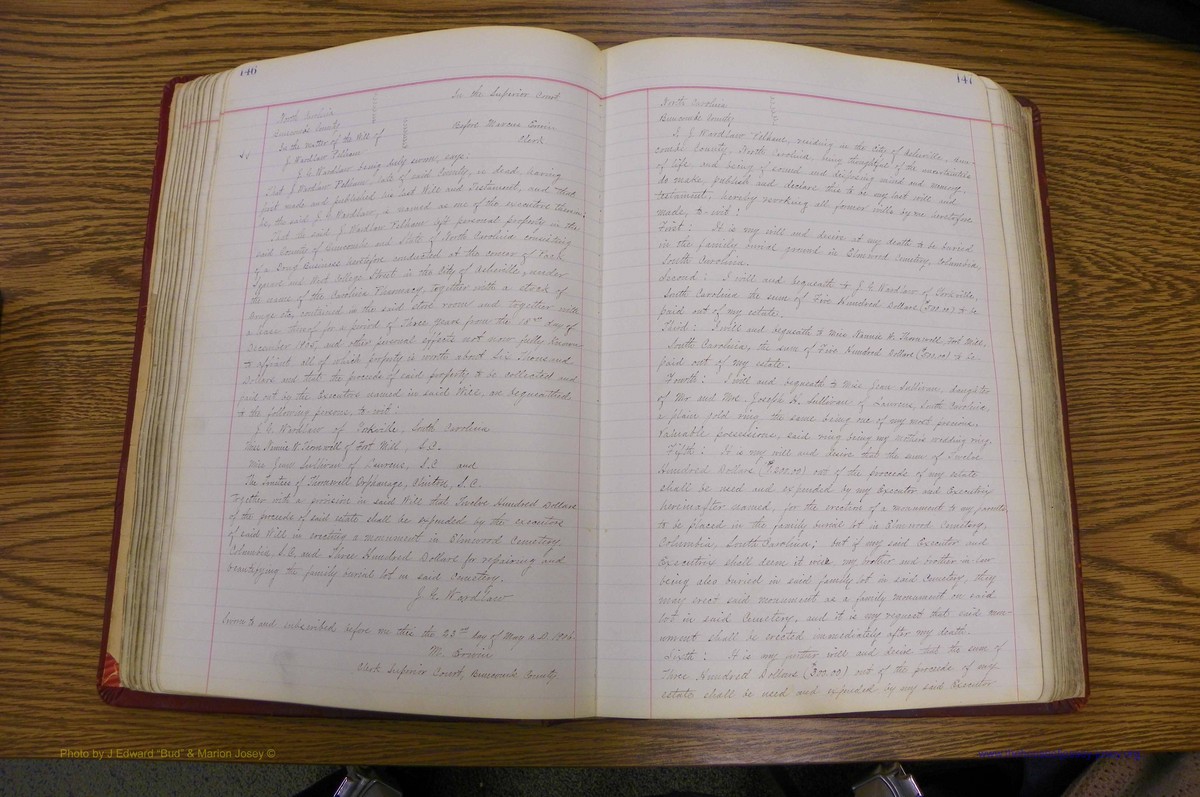 146
North Carolina
Buncombe County
In the Superior Court
In the matter of the Will of
J. Wardlaw Pelham
Before Marcus Erwin
Clerk
J. G. Wardlaw being duly sworn, says:
That J. Wardlaw Pelham, late of said County, is dead, having
first made and published his last Will and Testament, and that
he, the said J. G. Wardlaw, is named as one of the executors therein.
That the said J. Wardlaw Pelham left personal property in the
said County of Buncombe and State of North Carolina consisting
of a Drug Business heretofore conducted at the corner of Pack
Square and West College Street in the City of Asheville, under
the name of the Carolina Pharmacy, together with a stock of
drugs etc. contained in the said store room and together with
a lease thereof for a period of three years from the day of
December and other personal effects not now fully known
to affiant all of which property is worth about Six Thousand
Dollars and that the proceeds of said property to be collected and
paid out by the Executors named in said Will, are bequeathed
to the following persons, to-wit:
J. G. Wardlaw of Yorkville, South Carolina
Miss Nannie W. Thornwell of Fort Mill, S.C.
Miss Jean Sullivan of Laurens, S.C. and
The Trustees of Thornwell Orphanage, Clinton, S.C.
Together with a provision in said Will that Twelve Hundred Dollars
of the proceeds of said estate shall be expended by the executors
of said Will in erecting a monument in Elmwood Cemetery,
Columbia, S.C. and Three Hundred Dollars for repairing and
beautifying the family burial lot in said Cemetery.
J. G. Wardlaw
Sworn to and subscribed before me this the 23rd day of May A.D. 1906.
M. Erwin
Clerk Superior Court, Buncombe County.
147
North Carolina
Buncombe County
I, J. Wardlaw Pelham, residing in the City of Asheville, Bun-
combe County, North Carolina, being thoughtful of the uncertainties
of life and being of sound and disposing mind and memory,
do make, publish and declare this to be my last will and
testament, hereby revoking all former wills by me heretofore
made, to-wit:
First: It is my will and desire at my death to be buried
in the family burial ground in Elmwood Cemetery, Columbia,
South Carolina.
Second: I will and bequeath to J. G. Wardlaw of Yorkville,
South Carolina the sum of Five Hundred Dollars (500.00) to be
paid out of my estate.
Third: I will and bequeath to Miss Nannie W. Thornwell, Fort Mill,
South Carolina, the sum of Five Hundred Dollars (500.00) to be
paid out of my estate.
Fourth: I will and bequeath to Miss Jean Sullivan, daughter
of Mr and Mrs. Joseph H. Sullivan of Laurens, South Carolina,
a plain gold ring the same being one of my most precious,
valuable possessions, said ring being my mother's wedding ring.
Fifth: It is my will and desire that the sum of Twelve
Hundred Dollars ($1200.00) out of the proceeds of my estate
shall be used and expended by my Executor and Executrix
hereinafter named, for the erection of a monument to my parents
to be placed in the family burial lot in Elmwood Cemetery,
Columbia, South Carolina; but if my said Executor and
Executrix shall deem it wise, my brother and brother in law
being also buried in said family lot in said Cemetery, they
may erect said monument as a family monument on said
lot in said Cemetery, and it is my request that said mon-
ument shall be erected immediately after my death.
Sixth: It is my further will and desire that the sum of
Three Hundred Dollars ($300.00) out of the proceeds of my
estate shall be used and expended by my said Executor
Photo by J Edward "Bud" & Marion Josey ©